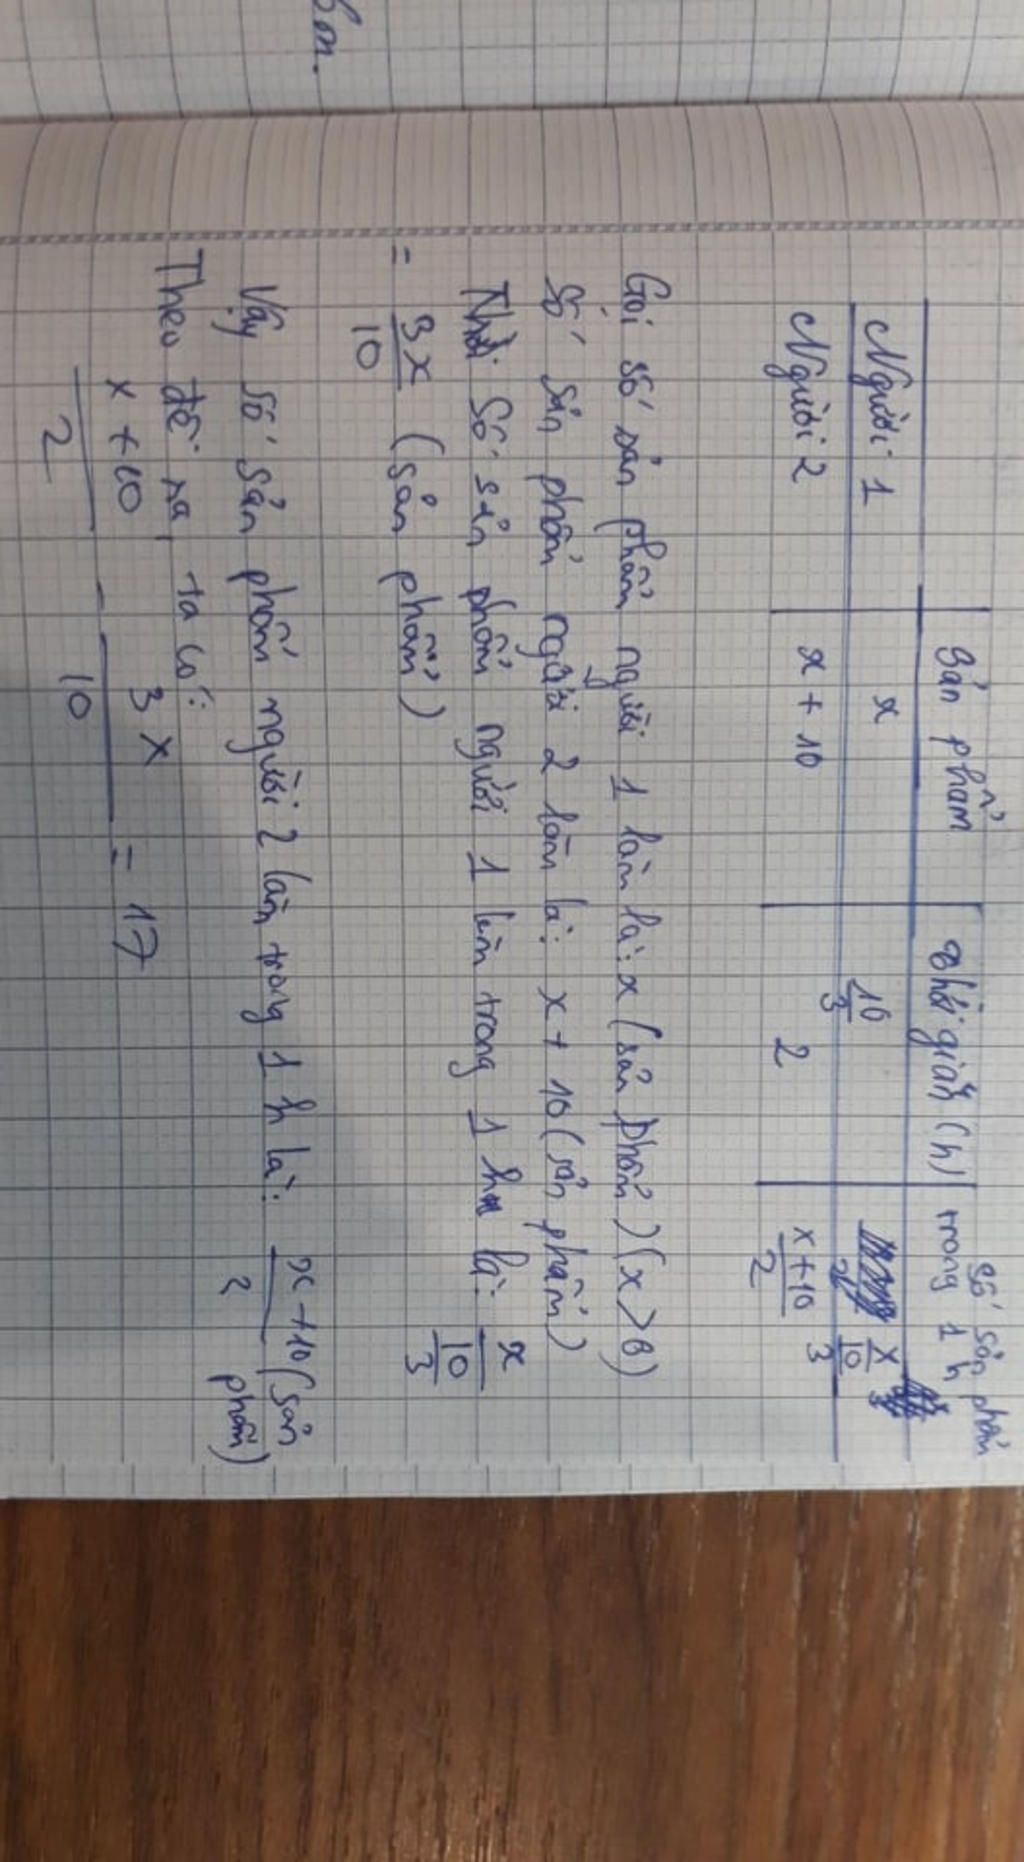 bm.
Sản phẩm Thời gian (h) Số sản phẩm trong 1 h
Người 1 x 10/3 x/(10/3)
Người 2 x + 10 2 (x+10)/2
Gọi số sản phẩm người 1 làm là: x (sản phẩm) (x>0)
Số sản phẩm người 2 làm là: x + 10 (sản phẩm)
Số sản phẩm người 1 làm trong 1 h là: x/(10/3)
= 3x/10 (sản phẩm)
Vậy số sản phẩm người 2 làm trong 1 h là: (x+10)/2 (sản phẩm)
Theo đề ra, ta có:
(x+10)/2 - 3x/10 = 17